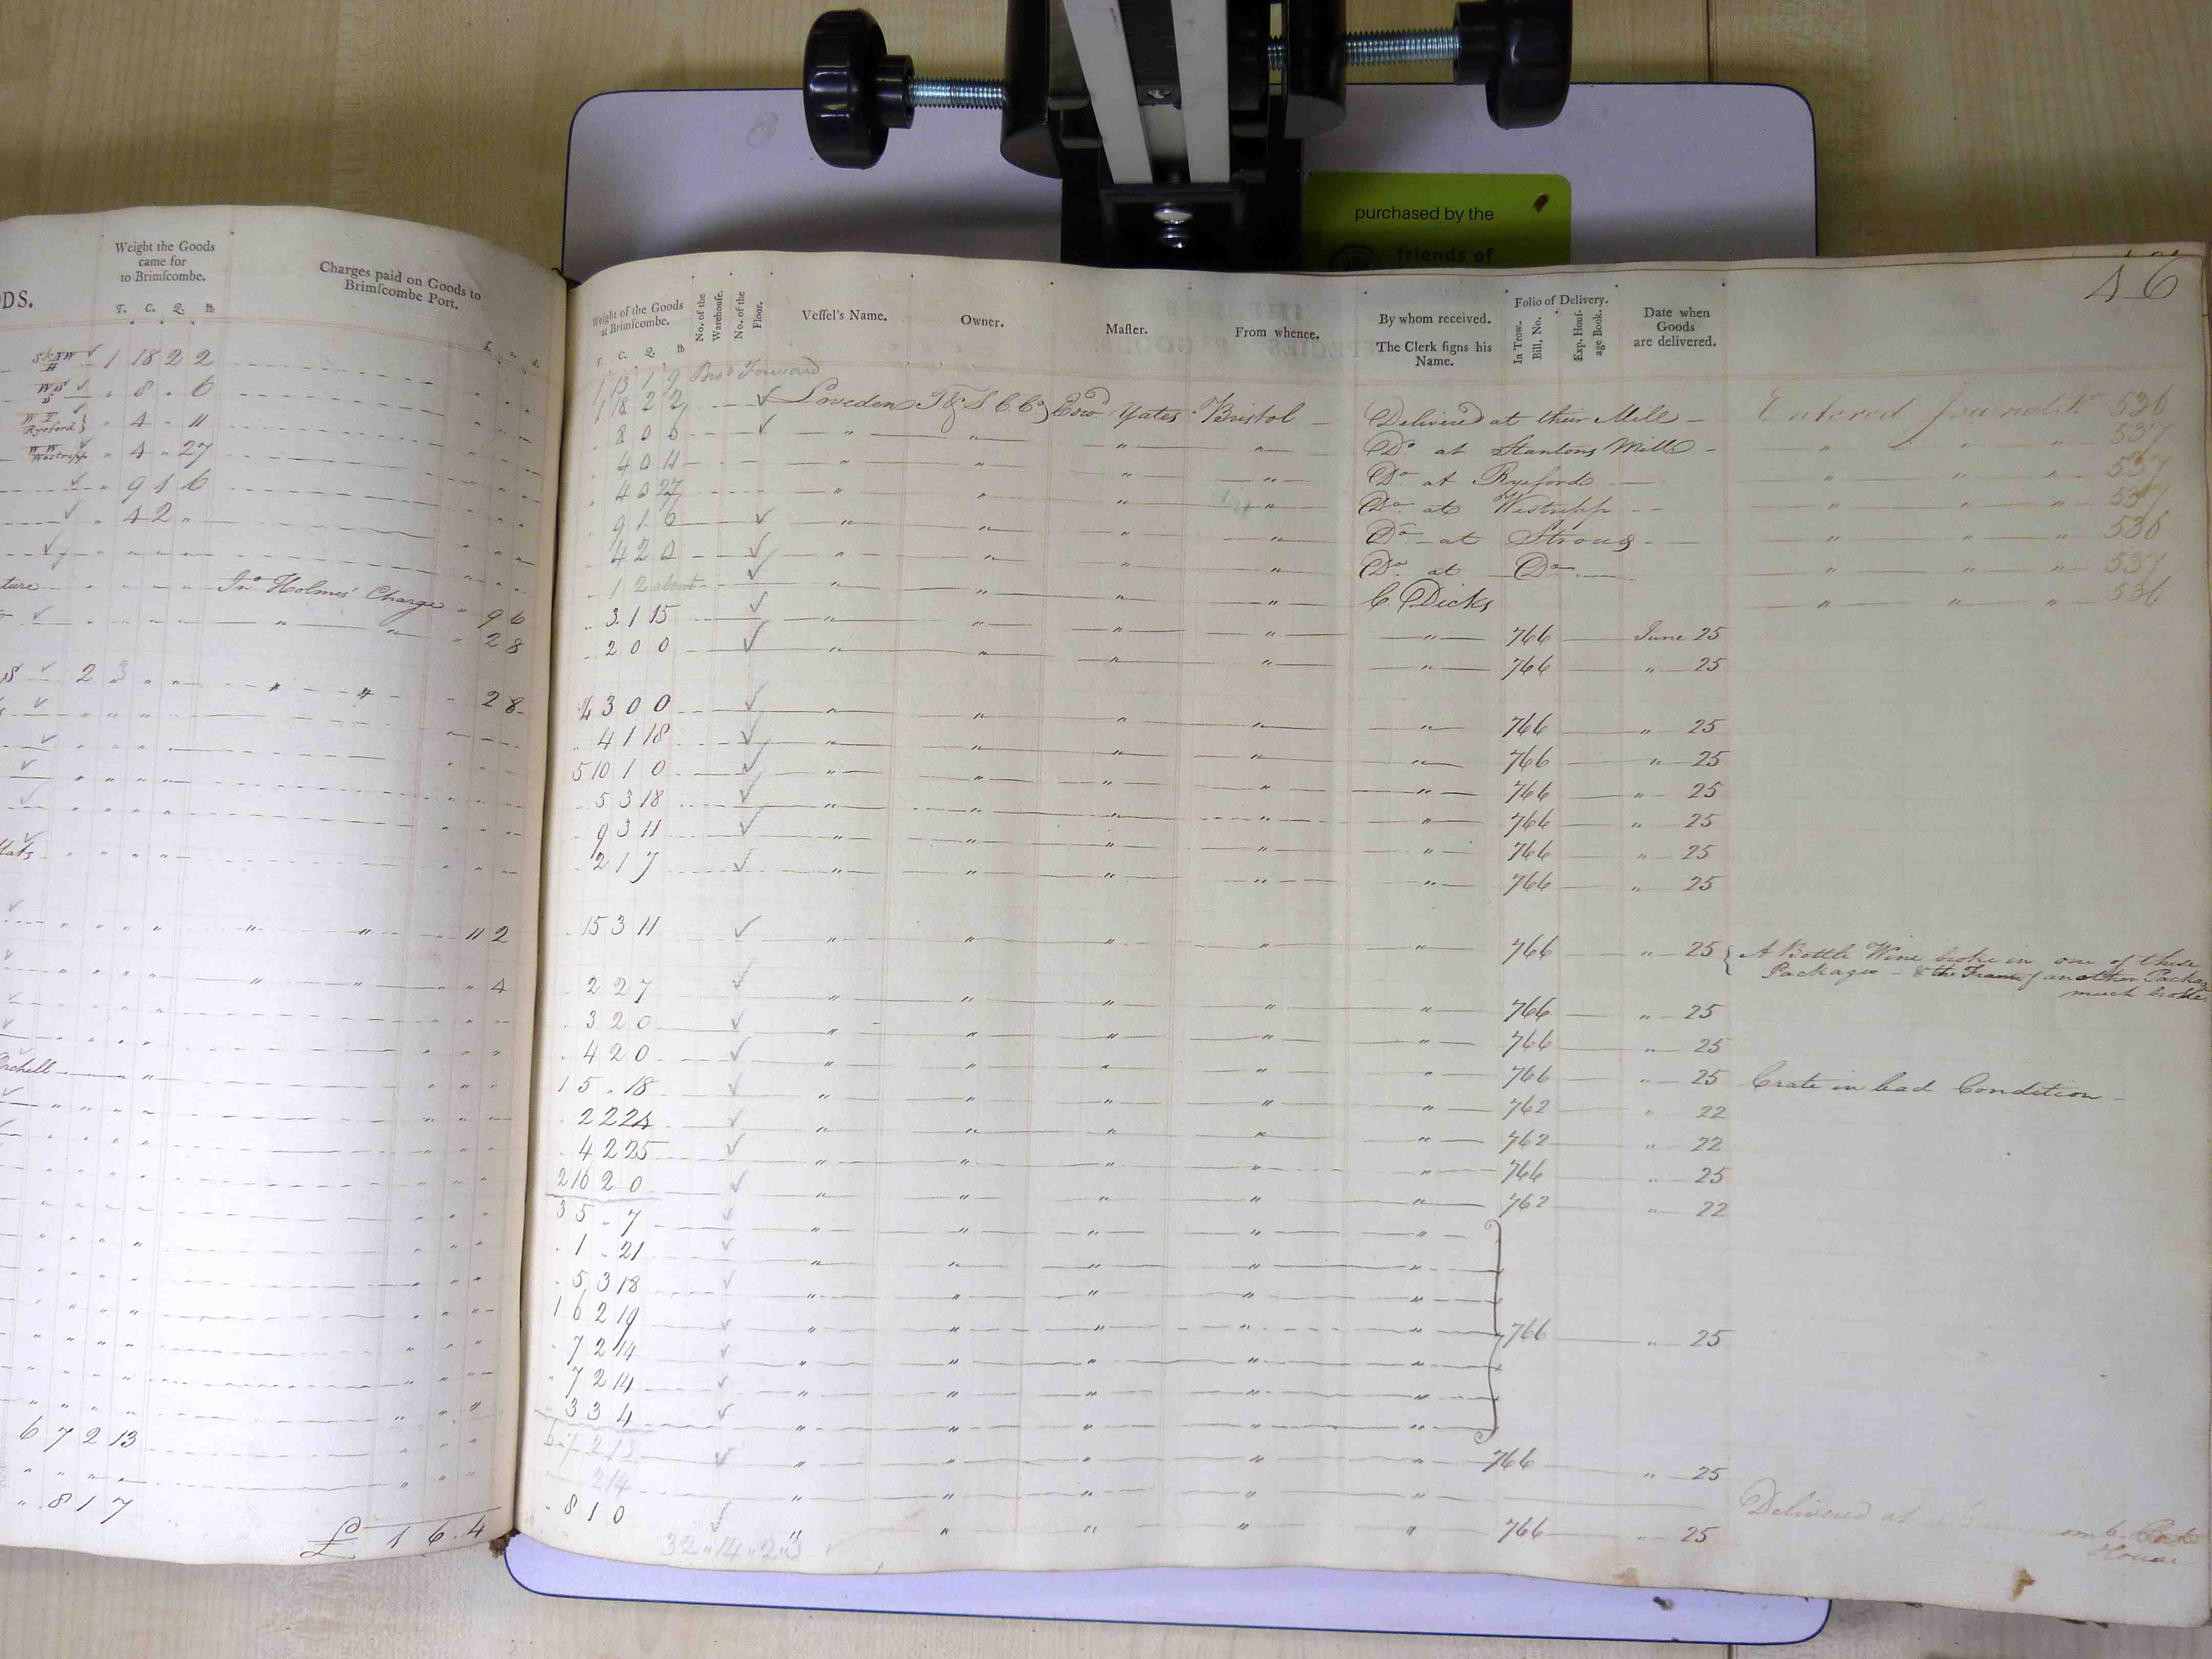 purchased by the
friends of
ODS.
Weight the Goods
came for
to Brimſcombe.
T. C. Q. lb
Charges paid on Goods to
Brimſcombe Port.
£. s. d.
1 18 2 2
" 8 " 6
Ryeford } " 4 " 11
" 4 " 27
" 9 1 6
" 4 2 "
ture Jnº Holmes' Charge " 9 6
" 2 8
2 3 " " " " 2 8
Hats
" 11 2
" " 4
6 7 2 13
" 8 1 7
£ 1 6 4
46
Weight of the Goods
at Brimſcombe.
T. C. Q. lb
No. of the
Warehouſe.
No. of the
Floor.
Veſſel's Name.
Owner.
Maſter.
From whence.
By whom received.
The Clerk ſigns his
Name.
Folio of Delivery.
In Trow-
Bill, No.
Exp. Houſ-
age Book.
Date when
Goods
are delivered.
1 13 1 9 Broᵗ Forward
1 18 2 2 Loveden T & S C Cº Edwᵈ Yates Bristol Delivered at their Mill Entered Journal Fº 536
" 8 0 6 " " " " Dº at Stantons Mill " " " 537
" 4 0 11 " " " " Dº at Ryeford " " " 537
" 4 0 27 " " " " Dº at Westripp " " " 537
" 9 1 6 " " " " Dº at Stroud " " " 536
" 4 2 0 " " " " Dº at Dº " " " 537
" 1 2 about " " " " C. Dicks " " " 536
" 3 1 15 " " " " " 766 June 25
" 2 0 0 " " " " " 766 " 25
4 3 0 0 " " " " " 766 " 25
" 4 1 18 " " " " " 766 " 25
5 10 1 0 " " " " " 766 " 25
" 5 3 18 " " " " " 766 " 25
" 9 3 11 " " " " " 766 " 25
" 2 1 7 " " " " " 766 " 25
" 15 3 11 " " " " " 766 " 25 { A Bottle Wine broke in one of these
Packages - & the Frame of another Package
much broke
" 2 2 7 " " " " " 766 " 25
" 3 2 0 " " " " " 766 " 25
" 4 2 0 " " " " " 766 " 25 Crate in bad Condition
1 5 " 18 " " " " " 762 " 22
" 2 2 24 " " " " " 762 " 22
" 4 2 25 " " " " " 766 " 25
2 16 2 0 " " " " " 762 " 22
3 5 " 7 " " " " "
" 1 " 21 " " " " "
" 5 3 18 " " " " "
1 6 2 19 " " " " " 766 " 25
" 7 2 14 " " " " "
" 7 2 14 " " " " "
" 3 3 4 " " " " "
6 7 2 13 " " " " " 766 " 25
2 14 " " " " "
" 8 1 0 " " " " " 766 " 25 Delivered at
House
32 " 14 " 2 " 3